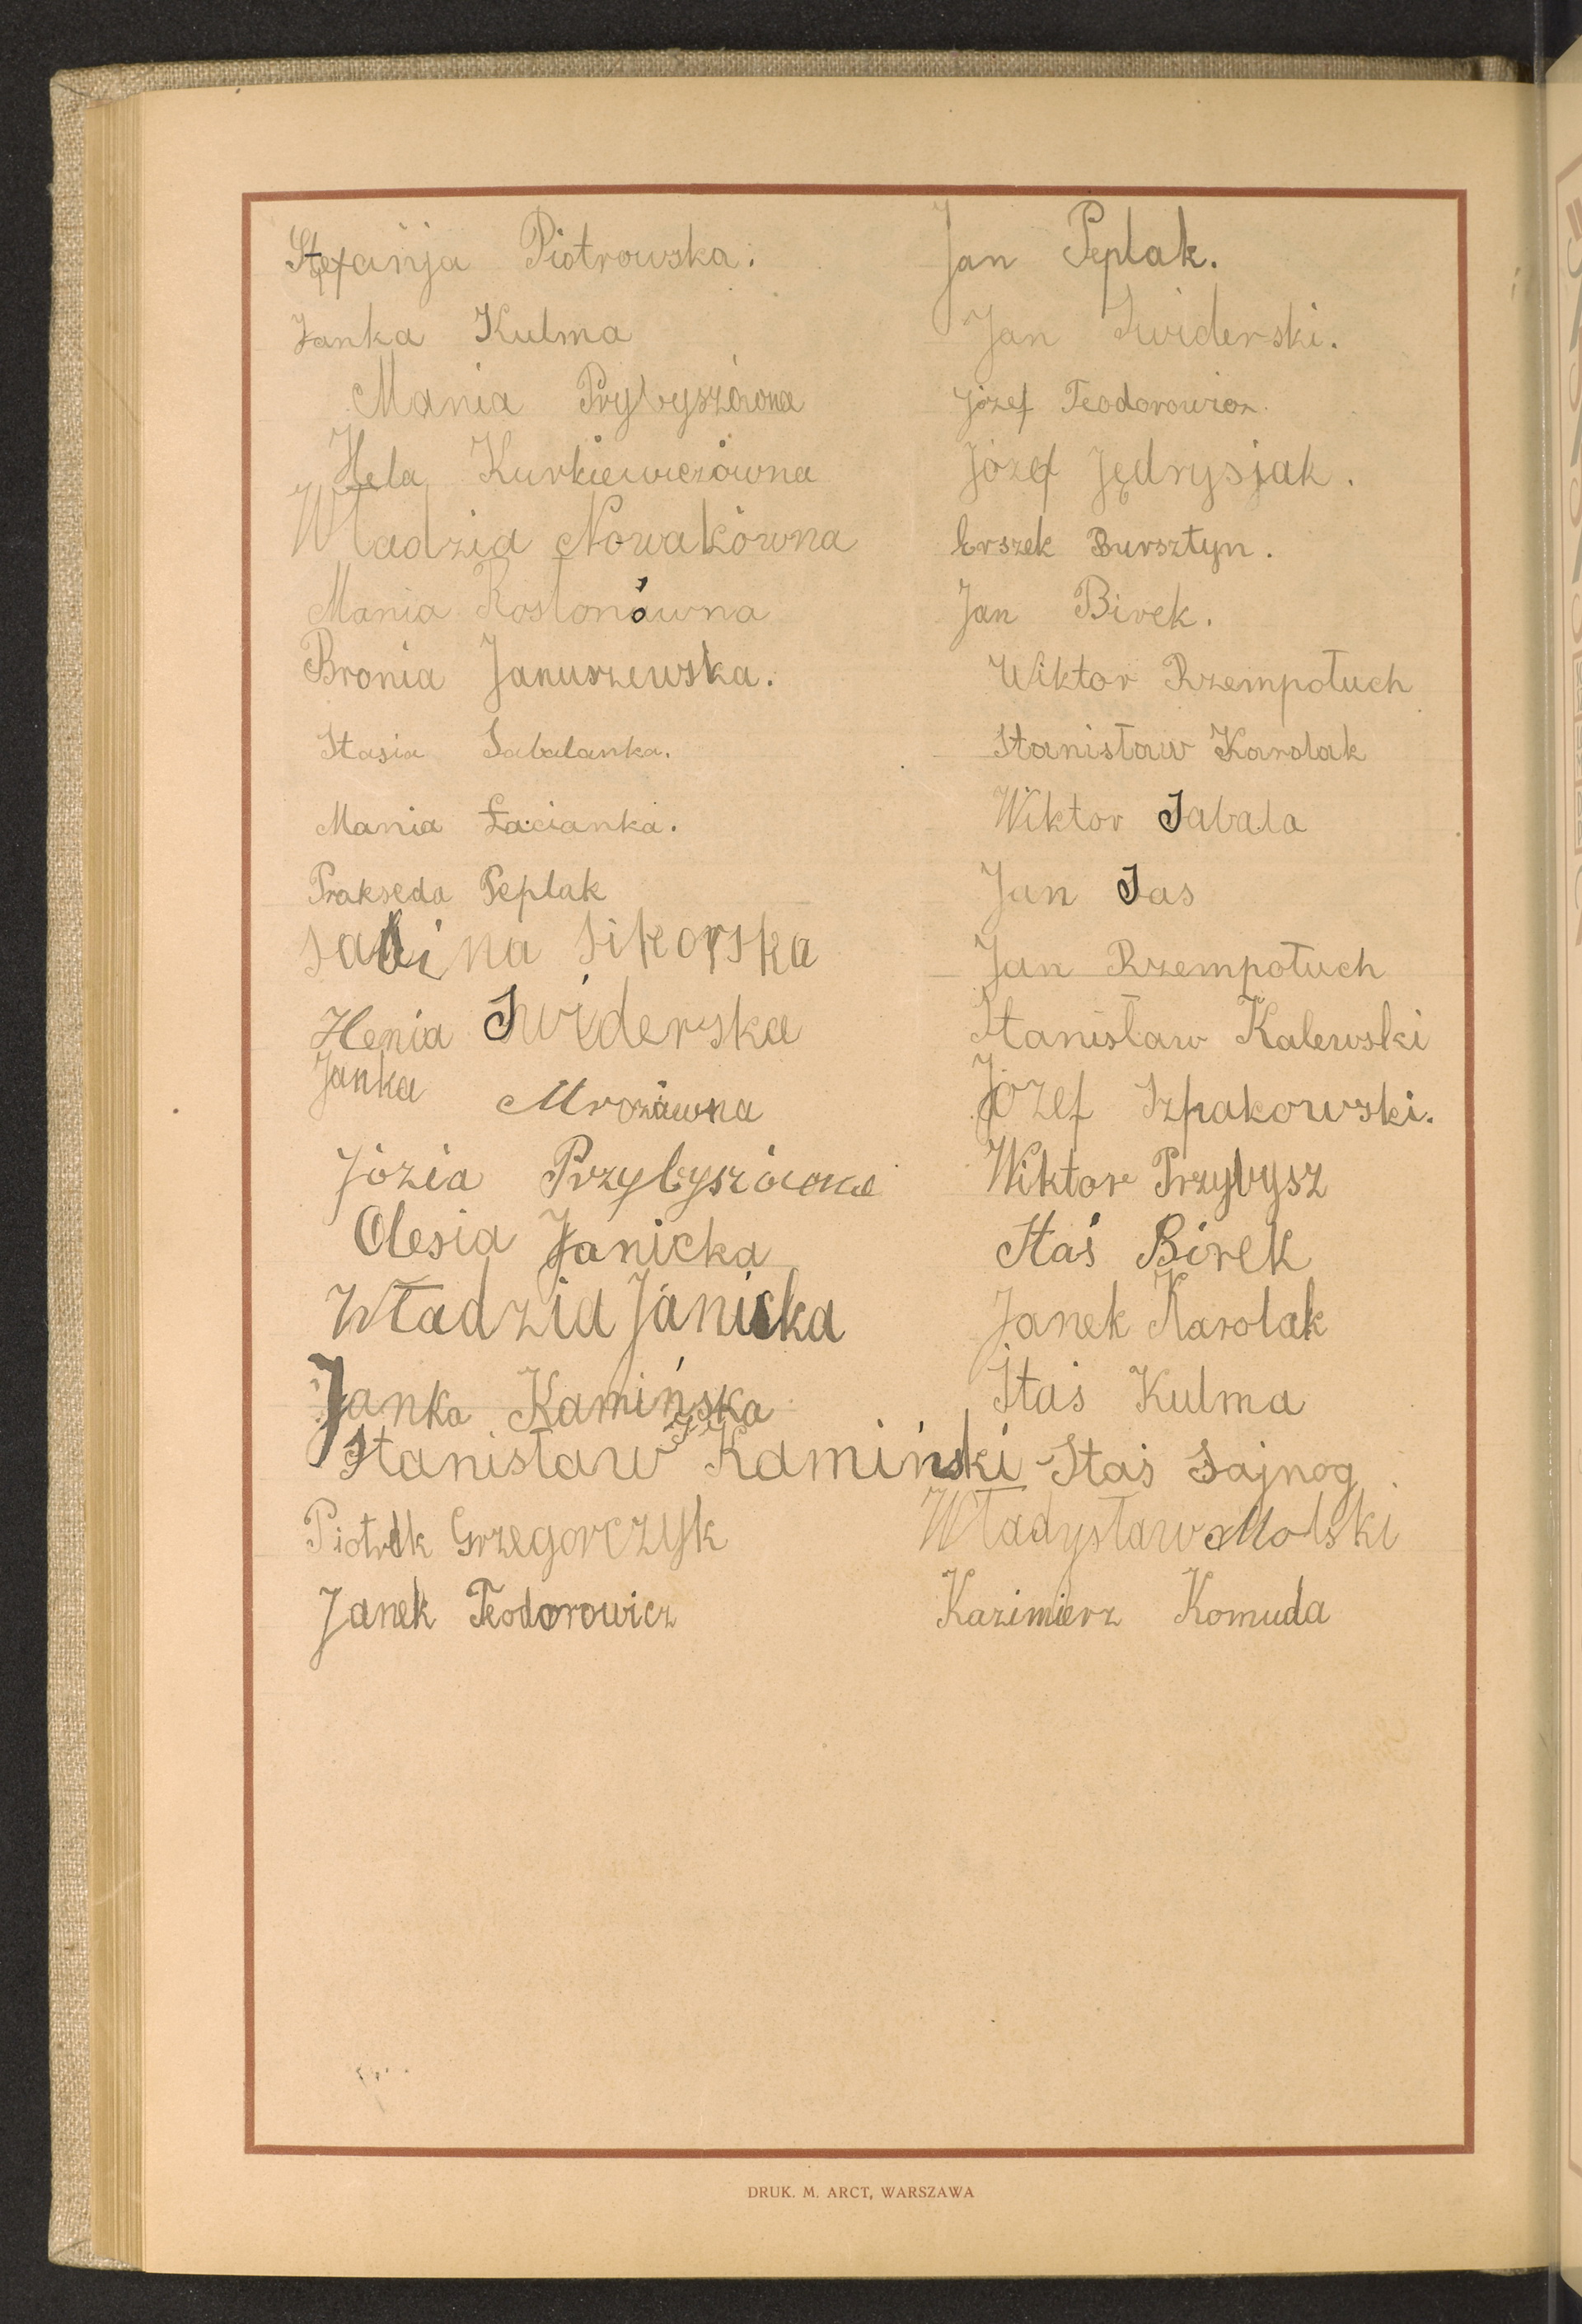 Stefanja Piotrowska.
Janka Kulma
Mania Prybyszówna
Hela Kurkiewiczówna
Władzia Nowakówna
Mania Rosłonówna
Bronia Januszewska.
Stasia Sabalanka.
Mania Łacianka.
Prakseda Peplak
Sabina Sikorska
Henia Swiderska
Janka Mrozówna
Józia Przybyszówna
Olesia Janicka
Władzia Janicka
Janka Kamińska
Stanisław Kamiński
Piotrek Grzegorczyk
Janek Teodorowicz
Jan Peplak.
Jan Swiderski.
Józef Teodorowicz.
Józef Jędrysjak.
Erszek Bursztyn.
Jan Birek.
Wiktor Rzempołuch
Stanisław Karolak
Wiktor Sabala
Jan Sas
Jan Rzempołuch
Stanisław Kalewski
Józef Szpakowski.
Wiktor Przybysz
Staś Birek
Janek Karolak
Staś Kulma
Staś Sajnog
Władysław Molski
Kazimierz Komuda
DRUK. M. ARCT, WARSZAWA